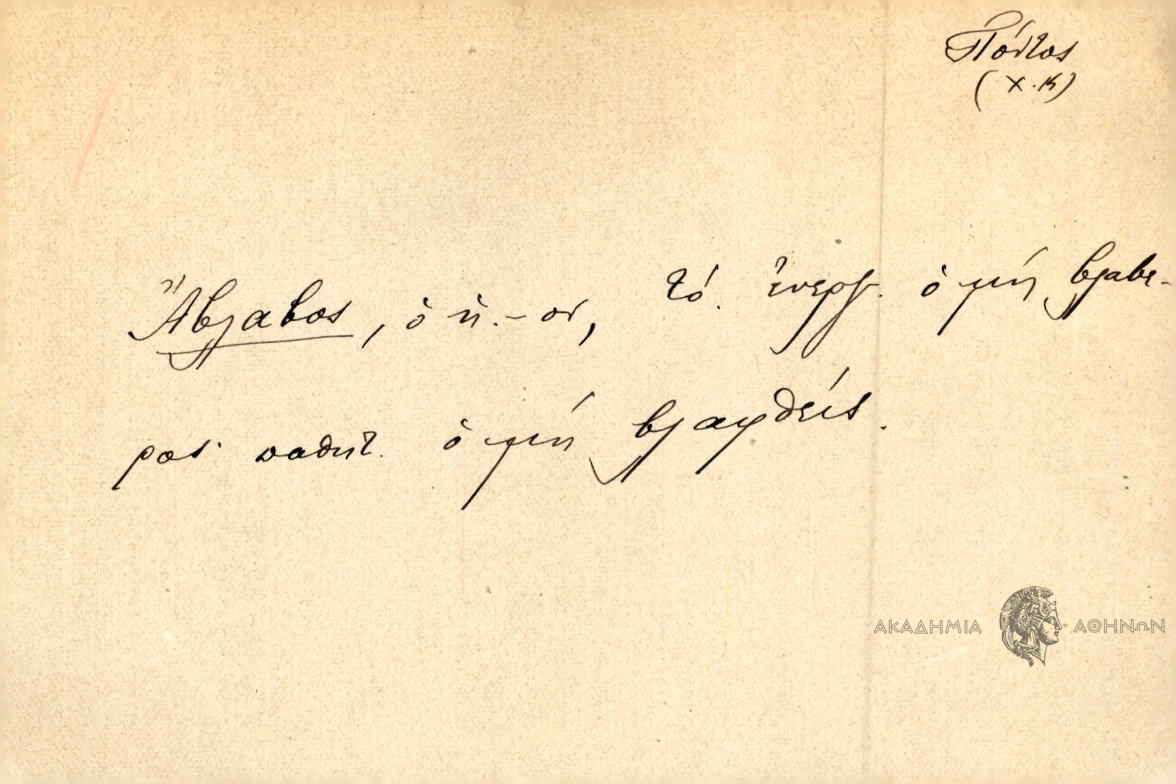 Πόντος
(Χ.Κ)
Ἄβλαβος, ὁ ἡ. – ον, τό. ἐνεργ. ὁ μή βλαβε-
ρος· παθητ. ὁ μή βλαφθείς.
ΑΚΑΔΗΜΙΑ ΑΘΗΝΩΝ